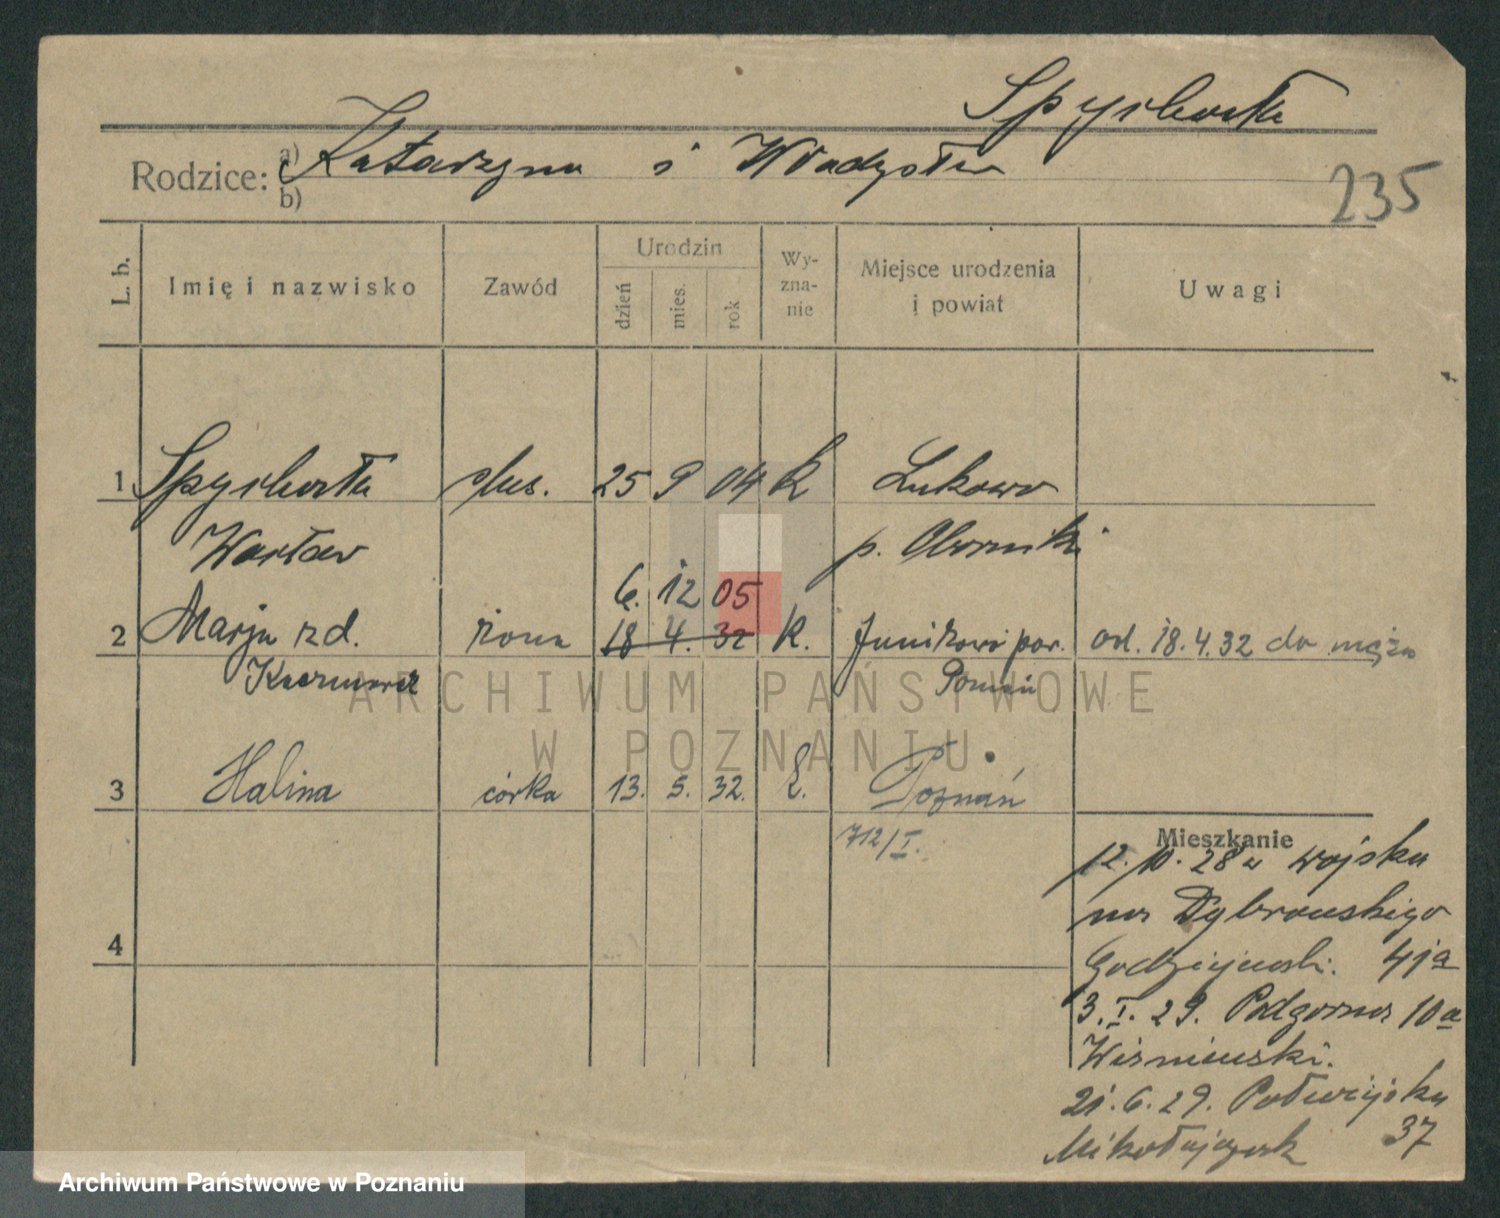 Spychała
Rodzice: a) Katarzyna i Władysław
b)
235
L. b. Imię i nazwisko Zawód Urodzin dzień mies. rok Wy-zna-nie Miejsce urodzenia i powiat Uwagi
1 Spychała ślus. 25 9 04 k Łukowo
Wacław p. Oborniki
6. 12 05
2 Marja zd. żona 18 4. 32 k. Junikowo pow. od. 18.4.32 do męża
Kaczmarek Poznań
ARCHIWUM PAŃSTWOWE
W POZNANIU
3 Halina córka 13. 5. 32. k. Poznań
712/I.
Mieszkanie
12.10.28 z wojska
na Dąbrowskiego
41a
4
3.I.29. Podgórna 10a
Wiśniewski.
21.6.29. Półwiejska
37
Mikołajczak
Archiwum Państwowe w Poznaniu